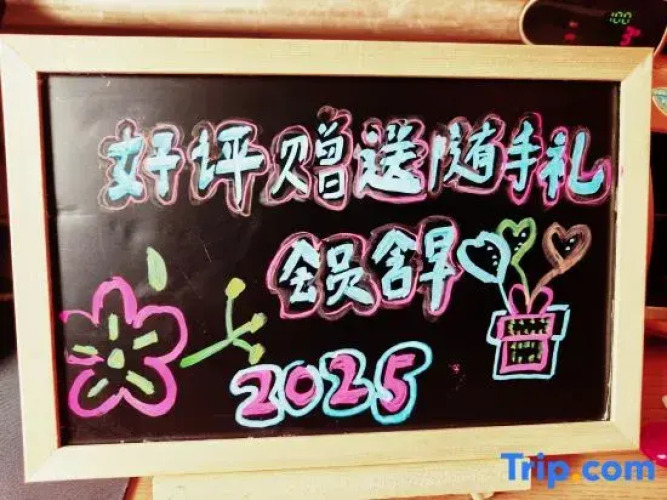 100
好评赠送随手礼
会员含早
2025
Trip.com